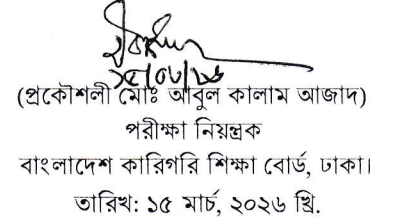 ১৫/০৩/২৬
(প্রকৌশলী মোঃ আবুল কালাম আজাদ)
পরীক্ষা নিয়ন্ত্রক
বাংলাদেশ কারিগরি শিক্ষা বোর্ড, ঢাকা।
তারিখ: ১৫ মার্চ, ২০২৬ খ্রি.